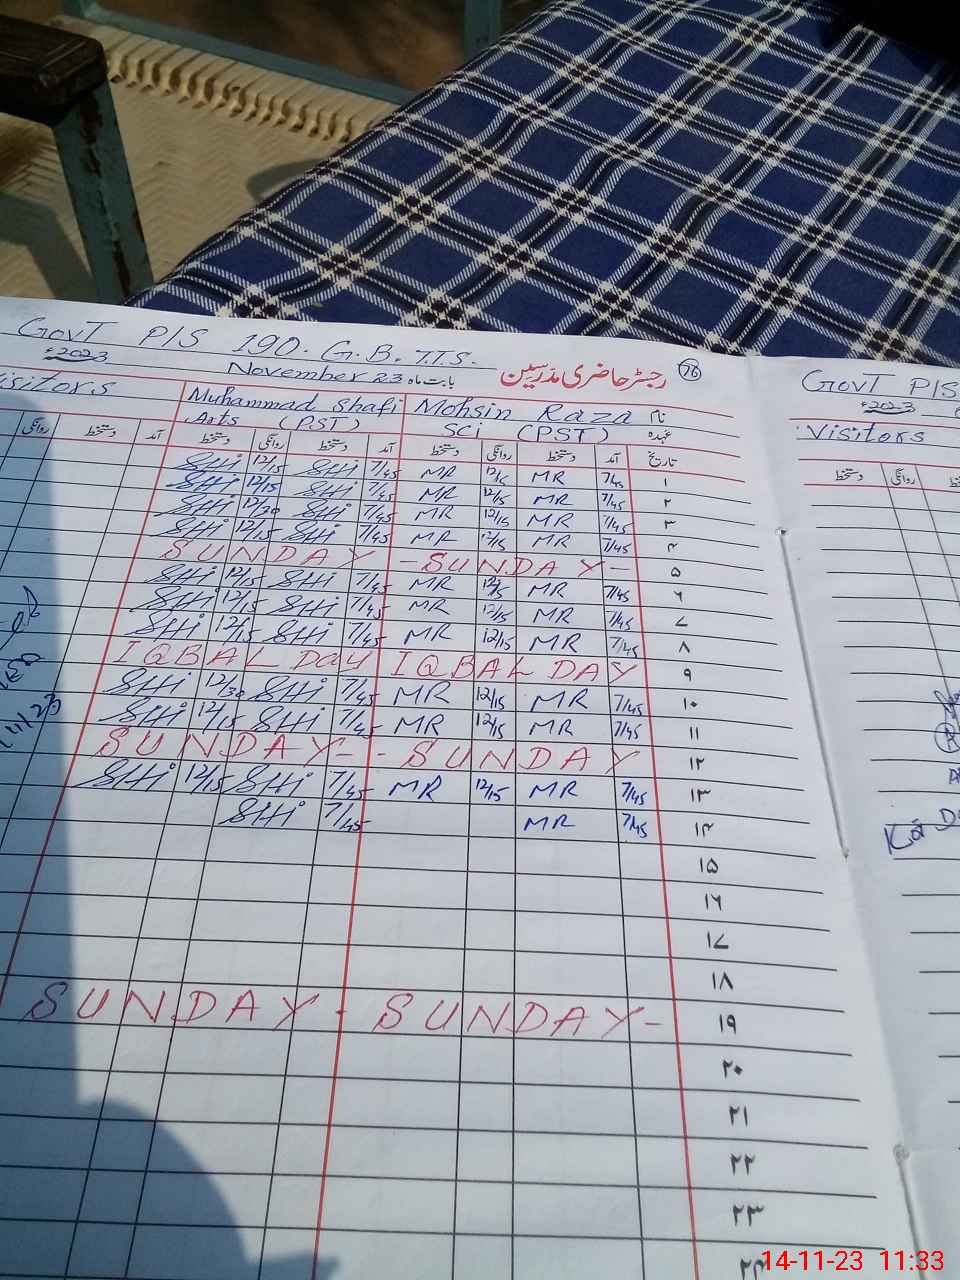 GovT P/S 190. G.B. T.T.S.
رجسٹر حاضری مدرسین
76
2023
November 23 بابت ماہ
isitors
Muhammad Shafi Mohsin Raza نام
Arts (PST) Sci (PST) عہدہ
روانگی دستخط آمد دستخط روانگی دستخط آمد دستخط روانگی دستخط آمد تاریخ
SHi 12/15 SHi 7/45 MR 12/15 MR 7/45 ۱
SHi 12/15 SHi 7/45 MR 12/15 MR 7/45 ۲
SHi 12/30 SHi 7/45 MR 12/15 MR 7/45 ۳
SHi 12/15 SHi 7/45 MR 12/15 MR 7/45 ۴
SUNDAY - SUNDAY - ۵
SHi 12/15 SHi 7/45 MR 12/15 MR 7/45 ۶
SHi 12/15 SHi 7/45 MR 12/15 MR 7/45 ۷
SHi 12/15 SHi 7/45 MR 12/15 MR 7/45 ۸
IQBAL Day IQBAL DAY ۹
SHi 12/30 SHi 7/45 MR 12/15 MR 7/45 ۱۰
SHi 12/15 SHi 7/45 MR 12/15 MR 7/45 ۱۱
SUNDAY - - SUNDAY ۱۲
SHi 12/15 SHi 7/45 MR 12/15 MR 7/45 ۱۳
SHi 7/45 MR 7/45 ۱۴
۱۵
۱۶
۱۷
۱۸
SUNDAY - SUNDAY - ۱۹
۲۰
۲۱
۲۲
۲۳
۲۴
GovT P/S
2023
Visitors
دستخط روانگی
14-11-23 11:33